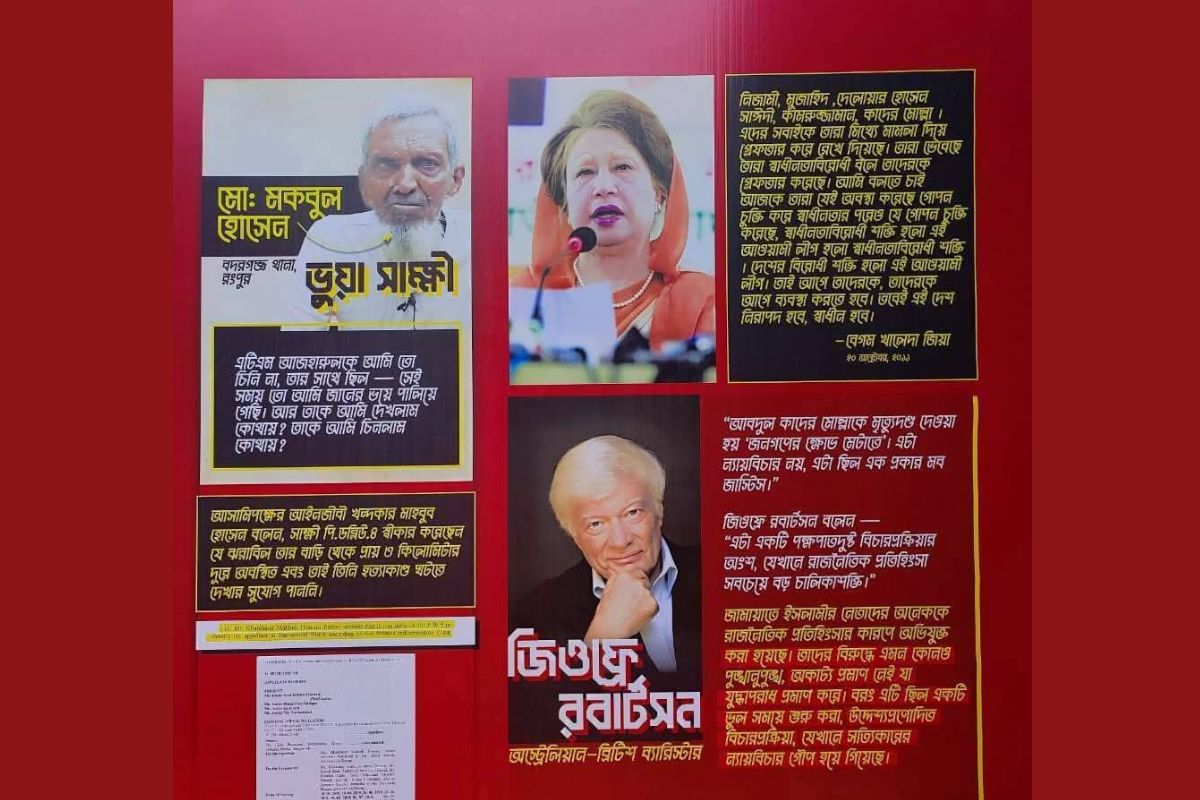 মো: মকবুল
হোসেন
বদরগঞ্জ থানা,
রংপুর
ভুয়া সাক্ষী
এটিএম আজহারুলকে আমি তো
চিনি না, তার সাথে ছিল — সেই
সময় তো আমি জানের ভয়ে পালিয়ে
গেছি। আর তাকে আমি দেখলাম
কোথায়? তাকে আমি চিনলাম
কোথায়?
আসামিপক্ষের আইনজীবী খন্দকার মাহবুব
হোসেন বলেন, সাক্ষী পি.ডব্লিউ.৪ স্বীকার করেছেন
যে ঝরাবিল তার বাড়ি থেকে প্রায় ৩ কিলোমিটার
দূরে অবস্থিত এবং তাই তিনি হত্যাকাণ্ড ঘটতে
দেখার সুযোগ পাননি।
নিজামী, মুজাহিদ ,দেলোয়ার হোসেন
সাঈদী, কামরুজ্জামান, কাদের মোল্লা ।
এদের সবাইকে তারা মিথ্যে মামলা দিয়ে
গ্রেফতার করে রেখে দিয়েছে। তারা ভেবেছে
তারা স্বাধীনতাবিরোধী বলে তাদেরকে
গ্রেফতার করেছে। আমি বলতে চাই
আজকে তারা যেই অবস্থা করেছে গোপন
চুক্তি করে স্বাধীনতার পরেও যে গোপন চুক্তি
করেছে, স্বাধীনতাবিরোধী শক্তি হলো এই
আওয়ামী লীগ হলো স্বাধীনতাবিরোধী শক্তি
। দেশের বিরোধী শক্তি হলো এই আওয়ামী
লীগ। তাই আগে তাদেরকে, তাদেরকে
আগে ব্যবস্থা করতে হবে। তবেই এই দেশ
নিরাপদ হবে, স্বাধীন হবে।
–বেগম খালেদা জিয়া
২০ অক্টোবর, ২০১১
জিওফ্রে
রবার্টসন
অস্ট্রেলিয়ান–ব্রিটিশ ব্যারিস্টার
“আবদুল কাদের মোল্লাকে মৃত্যুদণ্ড দেওয়া
হয় ‘জনগণের ক্ষোভ মেটাতে’। এটা
ন্যায়বিচার নয়, এটা ছিল এক প্রকার মব
জাস্টিস।”
জিওফ্রে রবার্টসন বলেন —
“এটা একটি পক্ষপাতদুষ্ট বিচারপ্রক্রিয়ার
অংশ, যেখানে রাজনৈতিক প্রতিহিংসা
সবচেয়ে বড় চালিকাশক্তি।”
জামায়াতে ইসলামীর নেতাদের অনেককে
রাজনৈতিক প্রতিহিংসার কারণে অভিযুক্ত
করা হয়েছে। তাদের বিরুদ্ধে এমন কোনও
পুঙ্খানুপুঙ্খ, অকাট্য প্রমাণ নেই যা
যুদ্ধাপরাধ প্রমাণ করে। বরং এটি ছিল একটি
ভুল সময়ে শুরু করা, উদ্দেশ্যপ্রণোদিত
বিচারপ্রক্রিয়া, যেখানে সত্যিকারের
ন্যায়বিচার গৌণ হয়ে গিয়েছে।